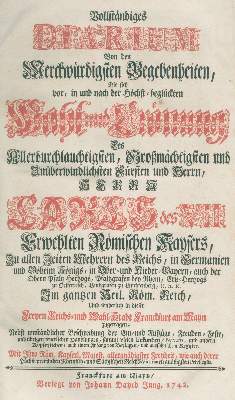 Vollständiges
DIARIUM
Von den
Merckwürdigsten Begebenheiten,
Die sich
vor, in und nach der Höchst-beglückten
Wahl und Crönung
Des
Allerdurchlauchtigsten, Großmächtigsten und
Unüberwindlichsten Fürsten und Herrn,
HERRN
CARLS des VII
Erwehlten Römischen Kaysers,
Zu allen Zeiten Mehrern des Reichs, in Germanien
und Böheim Königs, in Ober- und Nieder-Bayern, auch der
Obern Pfaltz Hertzogs, Pfaltzgrafen bey Rhein, Ertz-Hertzogs
zu Oesterreich, Landgrafen zu Leuchtenberg, &c. &c. &c.
Im gantzen Heil. Röm. Reich,
Und besonders in dieser
Freyen Reichs- und Wahl-Stadt Franckfurt am Mayn
zugetragen;
Nebst umständlicher Beschreibung der Ein- und Aufzüge, Freuden-Feste,
Mit Ihro Röm. Kayserl. Majest. allergnädigster Freyheit, wie auch derer
Franckfurt am Mayn,
Verlegt von Johann David Jung, 1742.